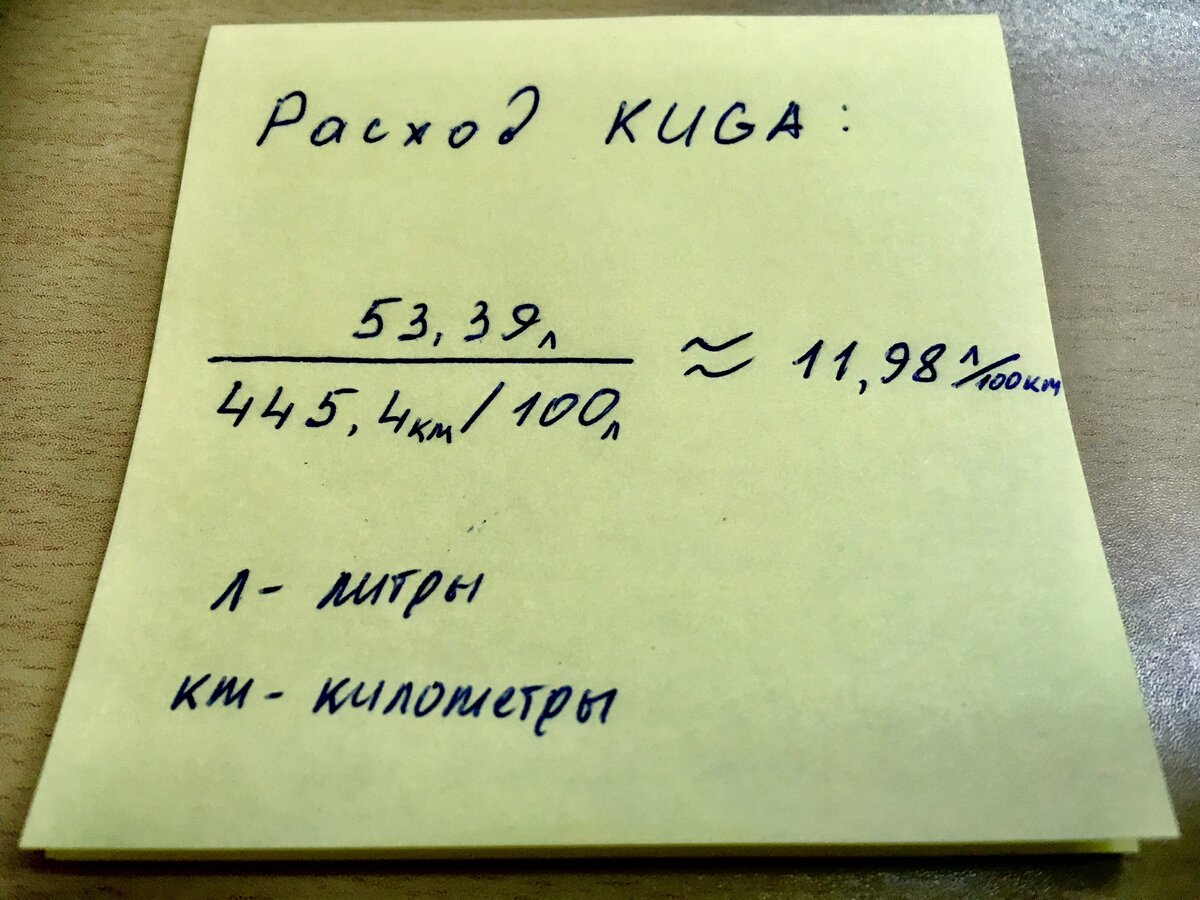 Расход KUGA:
53,39л
445,4км/100л ≈ 11,98 л/100км
л - литры
км - километры